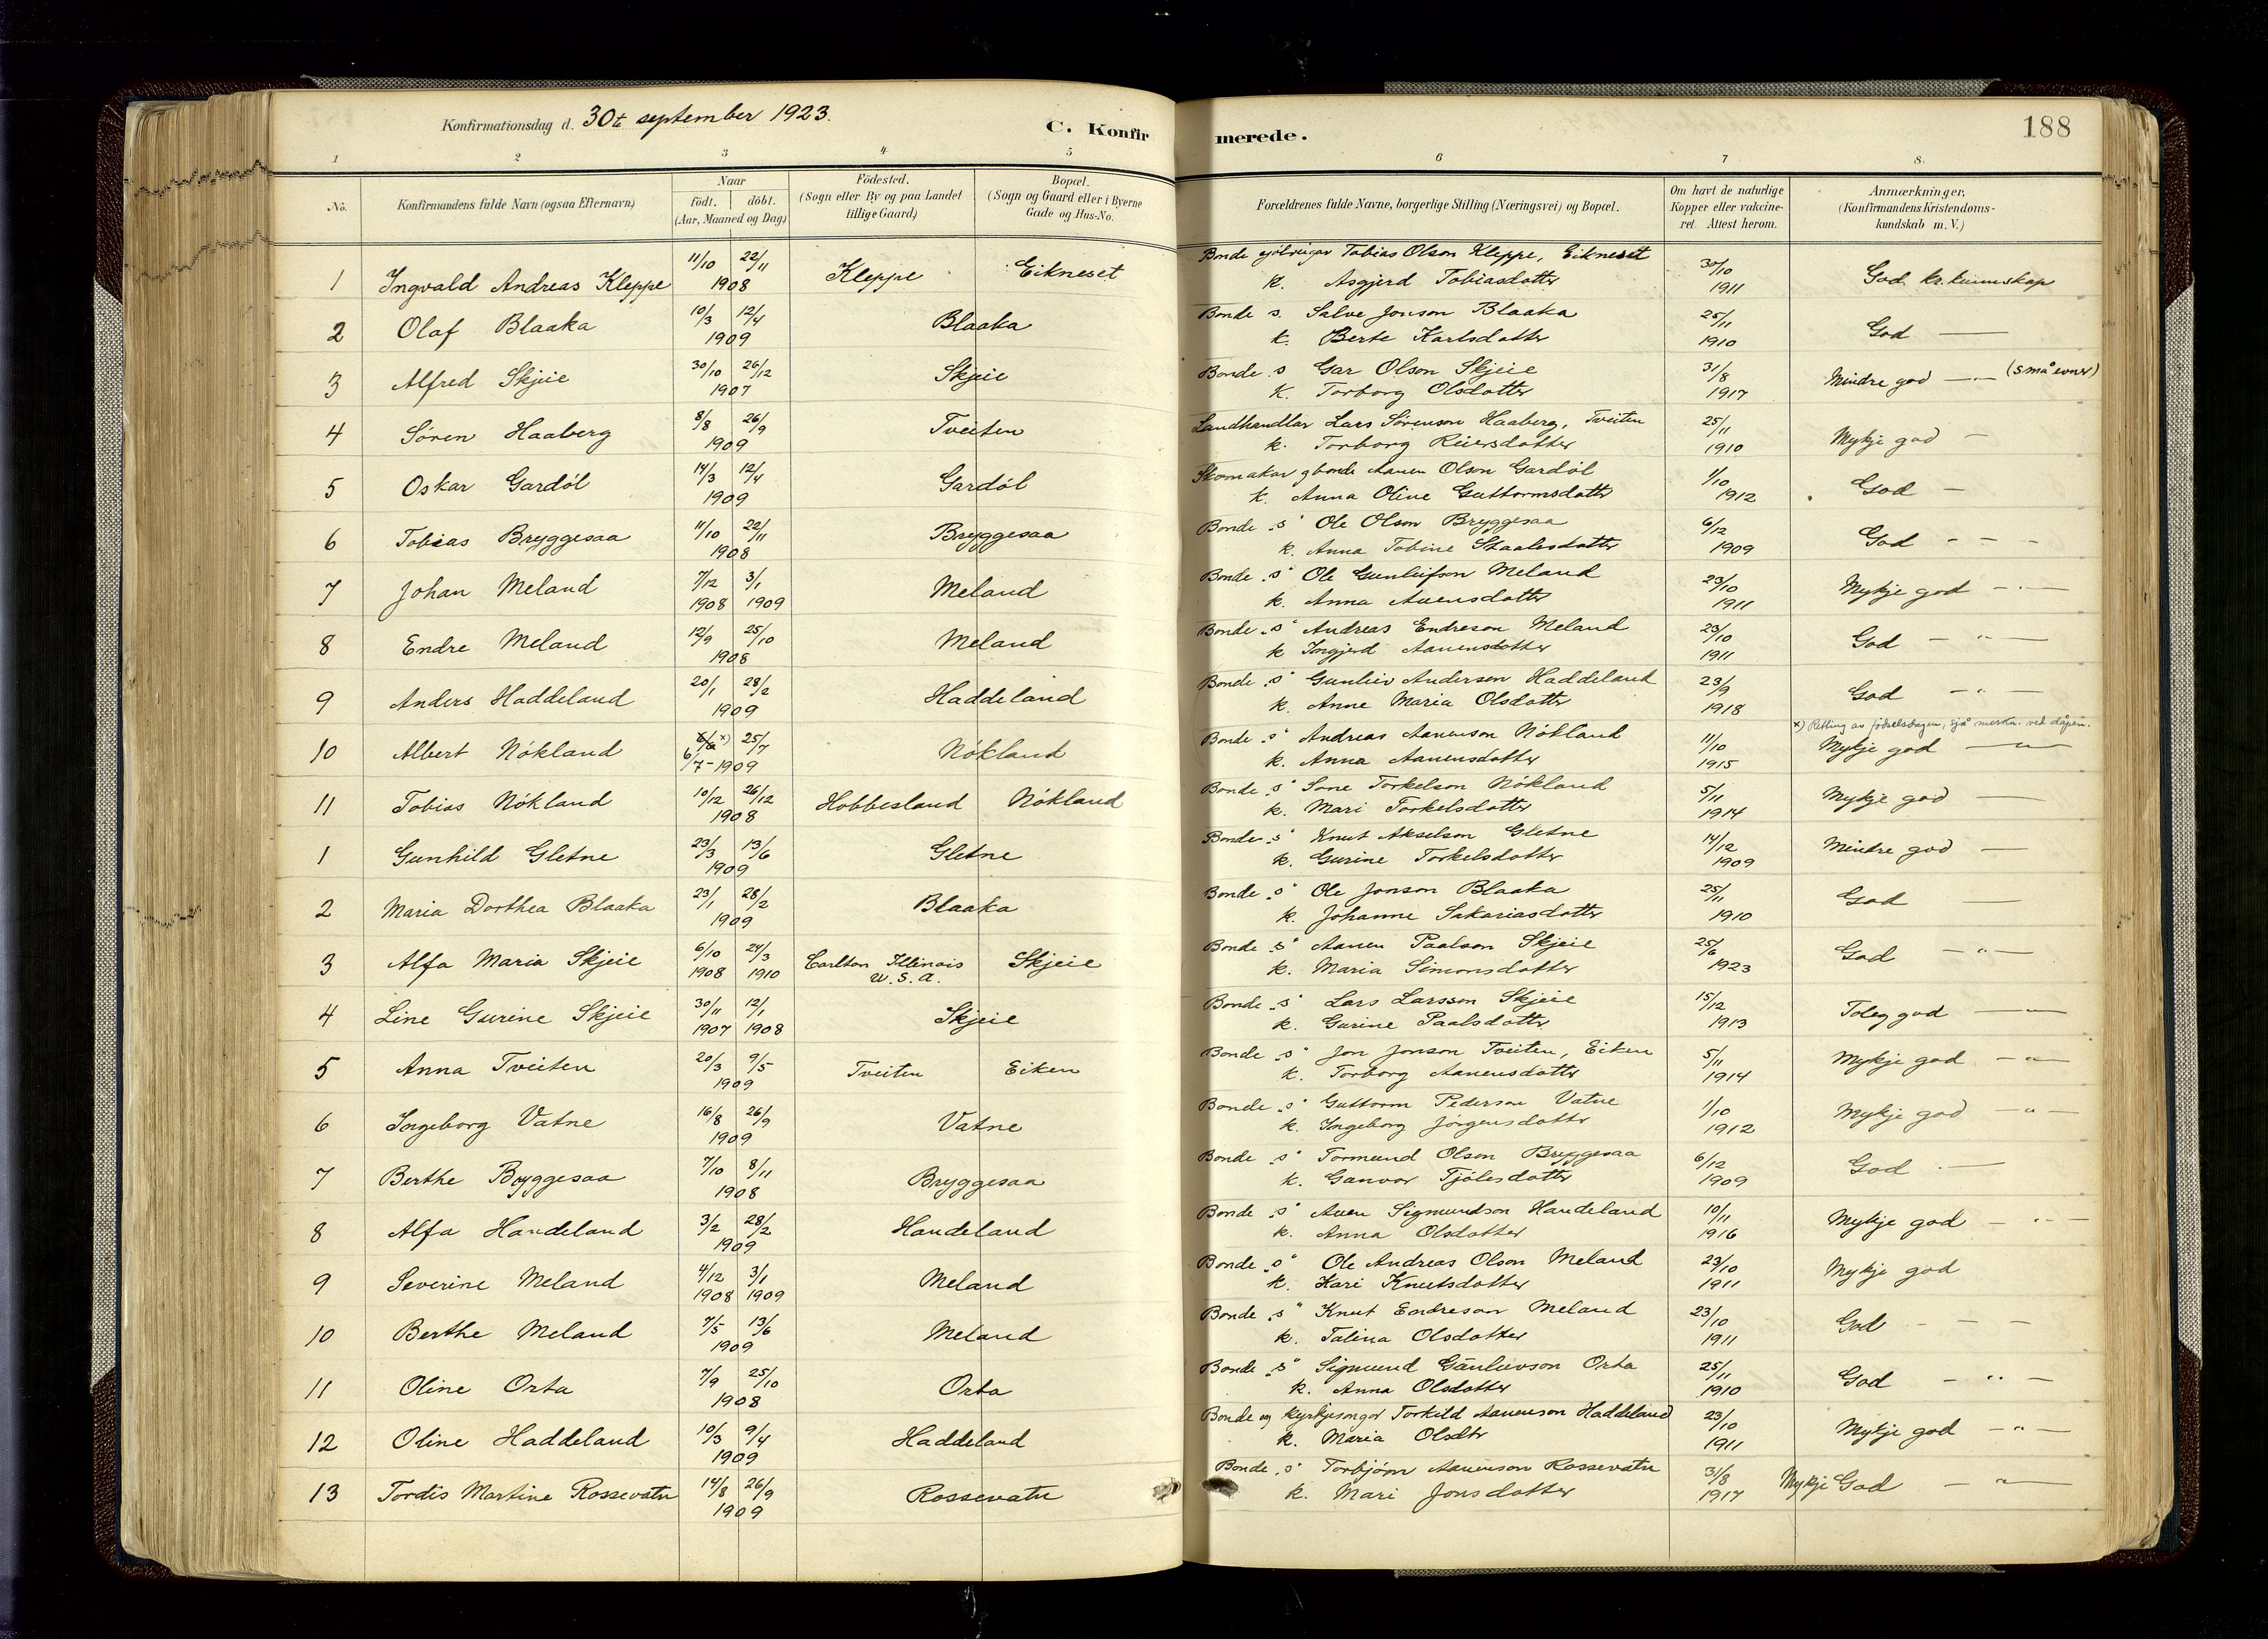 Konfirmationsdag d. 30t september 1923.
C. Konfirmerede.
188
1 2 3 4 5 6 7 8
No. Konfirmandens fulde Navn (ogsaa Efternavn) Naar født. døbt. (Aar, Maaned og Dag) Födested. (Sogn eller By og paa Landet tillige Gaard) Bopæl. (Sogn og Gaard eller i Byerne Gade og Hus-No. Forældrenes fulde Navne, borgerlige Stilling (Næringsvei) og Bopæl. Om havt de naturlige Kopper eller vakcineret. Attest herom. Anmærkninger, (Konfirmandens Kristendomskundskab m. V.)
1 Ingvald Andreas Kleppe 11/10 22/11 1908 Kleppe Eikneset Bonde sjöleigar Tobias Olson Kleppe, Eikneset
k. Asgjerd Tobiasdotter 30/10 1911 God kr. kunnskap
2 Olaf Blaaka 10/3 12/4 1909 Blaaka Bonde s. Salve Jonson Blaaka
k. Berte Karlsdotter 25/11 1910 God —
3 Alfred Skjeie 30/10 26/12 1907 Skjeie Bonde s Gar Olson Skjeie
k. Torborg Olsdotter 31/8 1917 Mindre god — (små evner)
4 Sören Haaberg 8/8 26/9 1909 Tveiten Landhandlar Lars Sörenson Haaberg, Tveiten
k. Torborg Reiersdotter 25/11 1910 Mykje god —
5 Oskar Gardöl 14/3 12/4 1909 Gardöl Skomakar g bonde Aanen Olson Gardöl
k. Anna Oline Guttormsdotter 1/10 1912 God —
6 Tobias Bryggesaa 11/10 22/11 1908 Bryggesaa Bonde "s" Ole Olson Bryggesaa
k. Anna Tobine Staalesdotter 6/12 1909 God - - -
7 Johan Meland 7/12 3/1 1908 1909 Meland Bonde "s" Ole Gunleifson Meland
k. Anna Auensdotter 23/10 1911 Mykje god — " —
8 Endre Meland 12/9 25/10 1908 Meland Bonde "s" Andreas Endreson Meland
k Ingjerd Aanensdotter 23/10 1911 God — " —
9 Anders Haddeland 20/1 28/2 1909 Haddeland Bonde "s" Gunleiv Anderson Haddeland
k. Anne Maria Olsdotter 23/9 1918 God — " —
x) Retting av födselsdagen, sjå merkn. ved dåpen.
10 Albert Nökland x) 25/7 6/7 - 1909 Nökland Bonde "s" Andreas Aanenson Nökland
k. Anna Aanensdotter 11/10 1915 Mykje god — " —
11 Tobias Nökland 10/12 26/12 1908 Hobbesland Nökland Bonde "s" Sone Torkelson Nökland
k. Mari Torkelsdotter 5/11 1914 Mykje god —
1 Gunhild Gletne 23/3 13/6 1909 Gletne Bonde "s" Knut Akselson Gletne
k. Gurine Torkelsdotter 14/12 1909 Mindre god —
2 Maria Dorthea Blaaka 23/1 28/2 1909 Blaaka Bonde "s" Ole Jonson Blaaka
k. Johanne Sakariasdotter 25/11 1910 God —
3 Alfa Maria Skjeie 6/10 24/3 1908 1910 Carlton Illinois U. S. A. Skjeie Bonde "s" Aanen Paalson Skjeie
k. Maria Simonsdotter 25/6 1923 God — " —
4 Line Gurine Skjeie 30/11 12/1 1907 1908 Skjeie Bonde "s" Lars Larsson Skjeie
k. Gurine Paalsdotter 15/12 1913 Toleg god — " —
5 Anna Tveiten 20/3 9/5 1909 Tveiten Eiken Bonde "s" Jon Jonson Tveiten, Eiken
k. Torborg Aanensdotter 5/11 1914 Mykje god — " —
6 Ingeborg Vatne 16/8 26/9 1909 Vatne Bonde "s" Guttorm Pederson Vatne
k. Ingeborg Jörgensdotter 1/10 1912 Mykje god — " —
7 Berthe Bryggesaa 7/10 8/11 1908 Bryggesaa Bonde "s" Tormund Olson Bryggesaa
k. Gunvor Tjölesdotter 6/12 1909 God —
8 Alfa Handeland 3/2 28/2 1909 Handeland Bonde "s" Auen Sigmundson Handeland
k. Anna Olsdotter 10/11 1916 Mykje god — " —
9 Severine Meland 4/12 3/1 1908 1909 Meland Bonde "s" Ole Andreas Olson Meland
k. Kari Knutsdotter 23/10 1911 Mykje god
10 Berthe Meland 7/5 13/6 1909 Meland Bonde "s" Knut Endreson Meland
k. Talina Olsdotter 23/10 1911 God - - -
11 Oline Orta 7/9 25/10 1908 Orta Bonde "s" Sigmund Gunleivson Orta
k. Anna Olsdotter 25/11 1910 God — " —
12 Oline Haddeland 10/3 9/4 1909 Haddeland Bonde og kyrkjesongar Torkild Aanenson Haddeland
k. Maria Olsdtr 23/10 1911 Mykje god — " —
13 Tordis Martine Rossevatn 14/8 26/9 1909 Rossevatn Bonde "s" Torbjörn Aanenson Rossevatn
k. Mari Jonsdotter 31/8 1917 Mykje God — " —